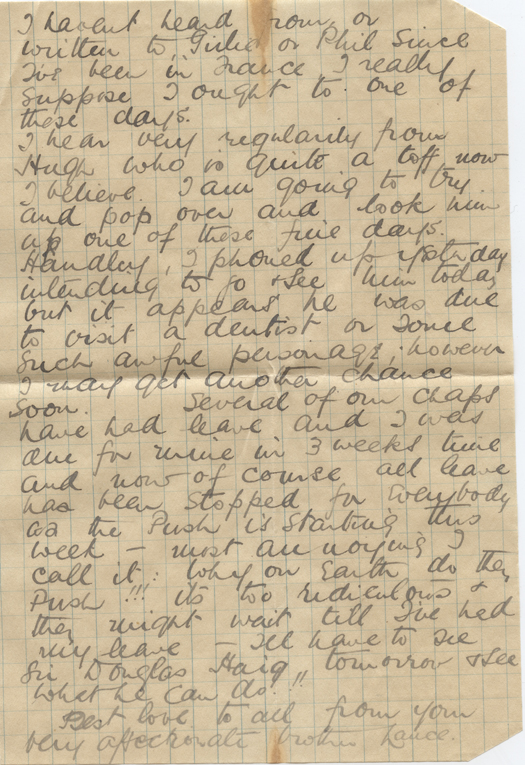 I havent heard from or
written to Girlie or Phil since
I've been in France I really
suppose I ought to one of
these days.
I hear very regularily from
Hugh who is quite a toff now
I believe. I am going to try
and pop over and look him
up one of these fine days.
Handley, I phoned up yesterday
intending to go & see him today
but it appears he was due
to visit a dentist or some
such awful personage; however
I may get another chance
soon. Several of our chaps
have had leave and I was
due for mine in 3 weeks time
and now of course all leave
has been stopped for everybody
as the Push is starting this
week – most annoying I
call it: Why on Earth do they
Push!!! its too ridiculous &
they might wait till I've had
my leave – I'll have to see
Sir Douglas Haig tomorrow & see
what he can do!!!
Best love to all from your
very affectionate brother Lance.